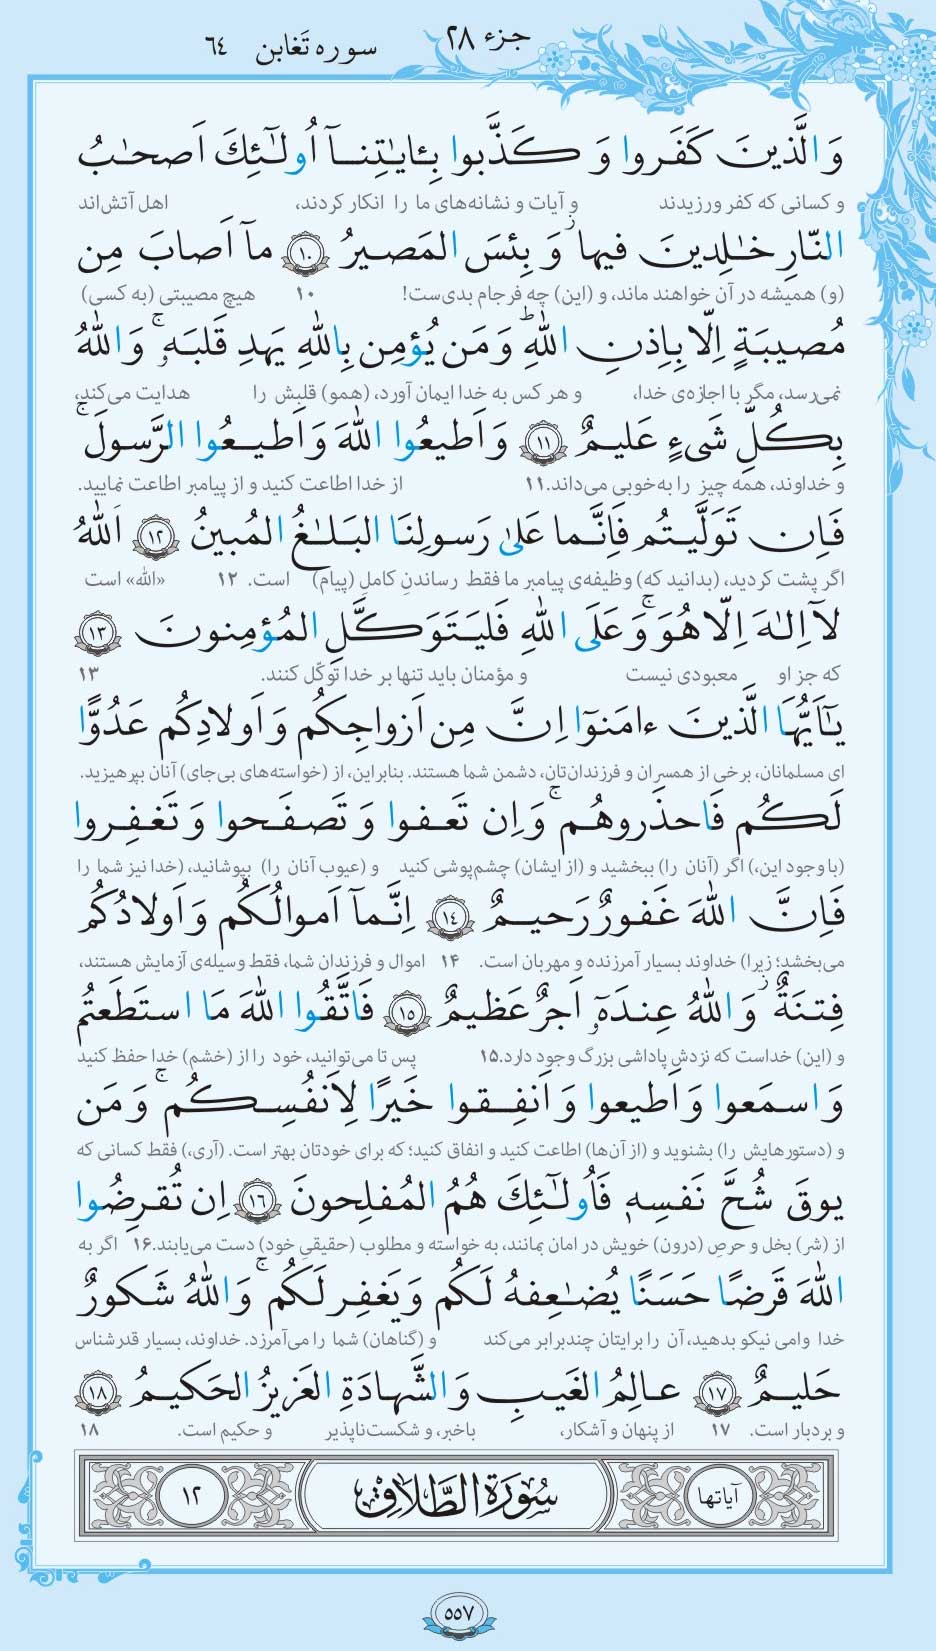 جزء ۲۸
سوره تَغابن ٦٤
وَالَّذینَ کَفَروا وَ کَذَّبوا بِـٔایـٰتِنـاۤ اُولـٰۤئِکَ اَصحـٰبُ
و کسانی که کفر ورزیدند و آیات و نشانه‌های ما را انکار کردند، اهل آتش‌اند
النّارِ خـٰلِدینَ فیها ۖ وَ بِئسَ المَصیرُ ﴿١٠﴾ ماۤ اَصابَ مِن
(و) همیشه در آن خواهند ماند، و (این) چه فرجام بدی‌ست! ۱۰ هیچ مصیبتی (به کسی)
مُصیبَةٍ اِلّا بِاِذنِ اللهِ ؕ وَ مَن یُؤمِن بِاللهِ یَهدِ قَلبَهٗ ۚ وَ اللهُ
نمی‌رسد، مگر با اجازه‌ی خدا، و هر کس به خدا ایمان آورد، (همو) قلبش را هدایت می‌کند،
بِکُلِّ شَیءٍ عَلیمٌ ﴿١١﴾ وَ اَطیعُوا اللهَ وَ اَطیـعُوا الرَّسولَ ۚ
و خداوند، همه چیز را به‌خوبی می‌داند.۱۱ از خدا اطاعت کنید و از پیامبر اطاعت نمایید.
فَاِن تَوَلَّیـتُم فَاِنَّـما عَلیٰ رَسولِنَا البَـلـٰغُ المُبینُ ﴿١٢﴾ اَللهُ
اگر پشت کردید، (بدانید که) وظیفه‌ی پیامبر ما فقط رساندنِ کاملِ (پیام) است. ۱۲ «الله» است
لاۤ اِلـٰهَ اِلّا هُوَ ۚ وَ عَلَی اللهِ فَلیَتَوَکَّلِ المُؤمِنونَ ﴿١٣﴾
که جز او معبودی نیست و مؤمنان باید تنها بر خدا توکّل کنند. ۱۳
یـٰۤاَیُّهَا الَّذینَ ءامَنوۤا اِنَّ مِن اَزواجِکُم وَ اَولادِکُم عَدُوًّا
ای مسلمانان، برخی از همسران و فرزندان‌تان، دشمن شما هستند. بنابراین، از (خواسته‌های بی‌جای) آنان بپرهیزید.
لَکُم فَاحذَروهُم ۚ وَ اِن تَعـفوا وَ تَصفَـحوا وَ تَغفِـروا
(با وجود این،) اگر (آنان را) ببخشید و (از ایشان) چشم‌پوشی کنید و (عیوب آنان را) بپوشانید، (خدا نیز شما را
فَاِنَّ اللهَ غَفورٌ رَحیـمٌ ﴿١٤﴾ اِنَّماۤ اَموالُکُم وَ اَولادُکُم
می‌بخشد؛ زیرا) خداوند بسیار آمرزنده و مهربان است. ۱۴ اموال و فرزندان شما، فقط وسیله‌ی آزمایش هستند،
فِتنَةٌ ۖ وَ اللهُ عِندَهٗۤ اَجرٌ عَظیمٌ ﴿١٥﴾ فَاتَّقُوا اللهَ مَا استَطَعتُم
و (این) خداست که نزدش پاداشی بزرگ وجود دارد.۱۵ پس تا می‌توانید، خود را از (خشم) خدا حفظ کنید
وَ اسمَعوا وَ اَطیعوا وَ اَنفِـقوا خَیرًا لِاَنفُسِکُم ۚ وَ مَن
و (دستورهایش را) بشنوید و (از آن‌ها) اطاعت کنید و انفاق کنید؛ که برای خودتان بهتر است. (آری،) فقط کسانی که
یوقَ شُحَّ نَفسِهٖ فَاُولـٰۤئِکَ هُمُ المُفلِحونَ ﴿١٦﴾ اِن تُقرِضُوا
از (شر) بخل و حرصِ (درون) خویش در امان بمانند، به خواسته و مطلوب (حقیقیِ خود) دست می‌یابند.۱۶ اگر به
اللهَ قَرضًا حَسَنًا یُضـٰعِفهُ لَکُم وَ یَغفِر لَکُم ۚ وَ اللهُ شَکورٌ
خدا وامی نیکو بدهید، آن را برایتان چندبرابر می‌کند و (گناهان) شما را می‌آمرزد. خداوند، بسیار قدرشناس
حَلیـمٌ ﴿١٧﴾ عـالِمُ الغَیبِ وَ الشَّهادَةِ العَزیزُ الحَکیمُ ﴿١٨﴾
و بردبار است. ۱۷ از پنهان و آشکار، باخبر، و شکست‌ناپذیر و حکیم است. ۱۸
آیاتها سُورَةُ الطَّلَاقِ ١٢
۵۵۷